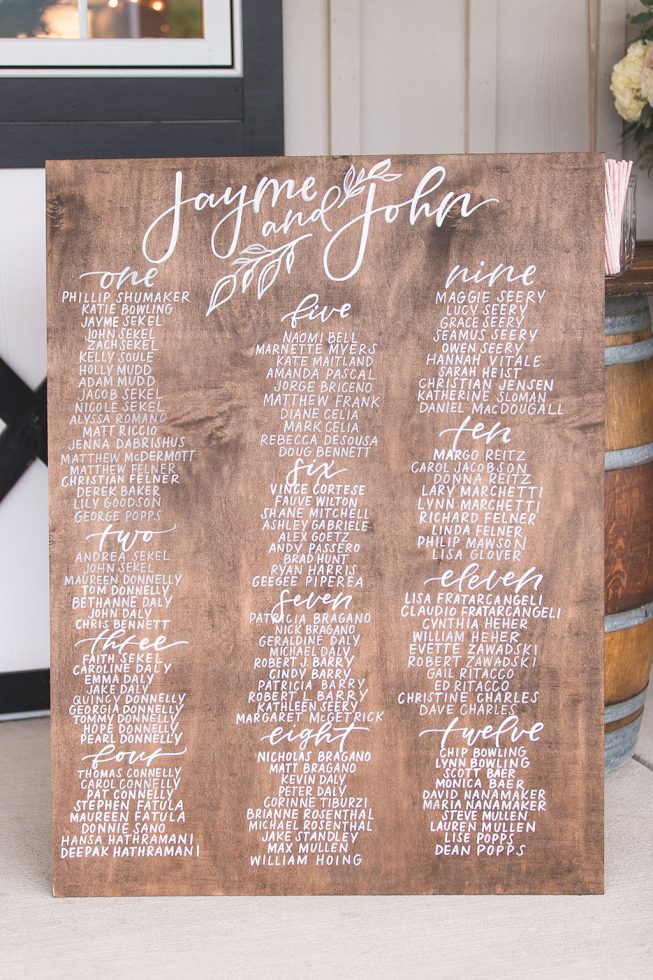 Jayme and John
one
PHILLIP SHUMAKER
KATIE BOWLING
JAYME SEKEL
JOHN SEKEL
ZACH SEKEL
KELLY SOULE
HOLLY MUDD
ADAM MUDD
JACOB SEKEL
NICOLE SEKEL
ALYSSA ROMANO
MATT RICCIO
JENNA DABRISHUS
MATTHEW McDERMOTT
MATTHEW FELNER
CHRISTIAN FELNER
DEREK BAKER
LILY GOODSON
GEORGE POPPS
two
ANDREA SEKEL
JOHN SEKEL
MAUREEN DONNELLY
TOM DONNELLY
BETHANNE DALY
JOHN DALY
CHRIS BENNETT
three
FAITH SEKEL
CAROLINE DALY
EMMA DALY
JAKE DALY
QUINCY DONNELLY
GEORGIA DONNELLY
TOMMY DONNELLY
HOPE DONNELLY
PEARL DONNELLY
four
THOMAS CONNELLY
CAROL CONNELLY
PAT CONNELLY
STEPHEN FATULA
MAUREEN FATULA
DONNIE SANO
HANSA HATHRAMANI
DEEPAK HATHRAMANI
five
NAOMI BELL
MARNETTE MYERS
KATE MAITLAND
AMANDA PASCAL
JORGE BRICENO
MATTHEW FRANK
DIANE CELIA
MARK CELIA
REBECCA DESOUSA
DOUG BENNETT
six
VINCE CORTESE
FAUVE WILTON
SHANE MITCHELL
ASHLEY GABRIELE
ALEX GOETZ
ANDY PASSERO
BRAD HUNT
RYAN HARRIS
GEEGEE PIPEREA
seven
PATRICIA BRAGANO
NICK BRAGANO
GERALDINE DALY
MICHAEL DALY
ROBERT J. BARRY
CINDY BARRY
PATRICIA BARRY
ROBERT L. BARRY
KATHLEEN SEERY
MARGARET McGETRICK
eight
NICHOLAS BRAGANO
MATT BRAGANO
KEVIN DALY
PETER DALY
CORINNE TIBURZI
BRIANNE ROSENTHAL
MICHAEL ROSENTHAL
JAKE STANDLEY
MAX MULLEN
WILLIAM HOING
nine
MAGGIE SEERY
LUCY SEERY
GRACE SEERY
SEAMUS SEERY
OWEN SEERY
HANNAH VITALE
SARAH HEIST
CHRISTIAN JENSEN
KATHERINE SLOMAN
DANIEL MACDOUGALL
ten
MARGO REITZ
CAROL JACOBSON
DONNA REITZ
LARY MARCHETTI
LYNN MARCHETTI
RICHARD FELNER
LINDA FELNER
PHILIP MAWSON
LISA GLOVER
eleven
LISA FRATARCANGELI
CLAUDIO FRATARCANGELI
CYNTHIA HEHER
WILLIAM HEHER
EVETTE ZAWADSKI
ROBERT ZAWADSKI
GAIL RITACCO
ED RITACCO
CHRISTINE CHARLES
DAVE CHARLES
twelve
CHIP BOWLING
LYNN BOWLING
SCOTT BAER
MONICA BAER
DAVID NANAMAKER
MARIA NANAMAKER
STEVE MULLEN
LAUREN MULLEN
LISE POPPS
DEAN POPPS